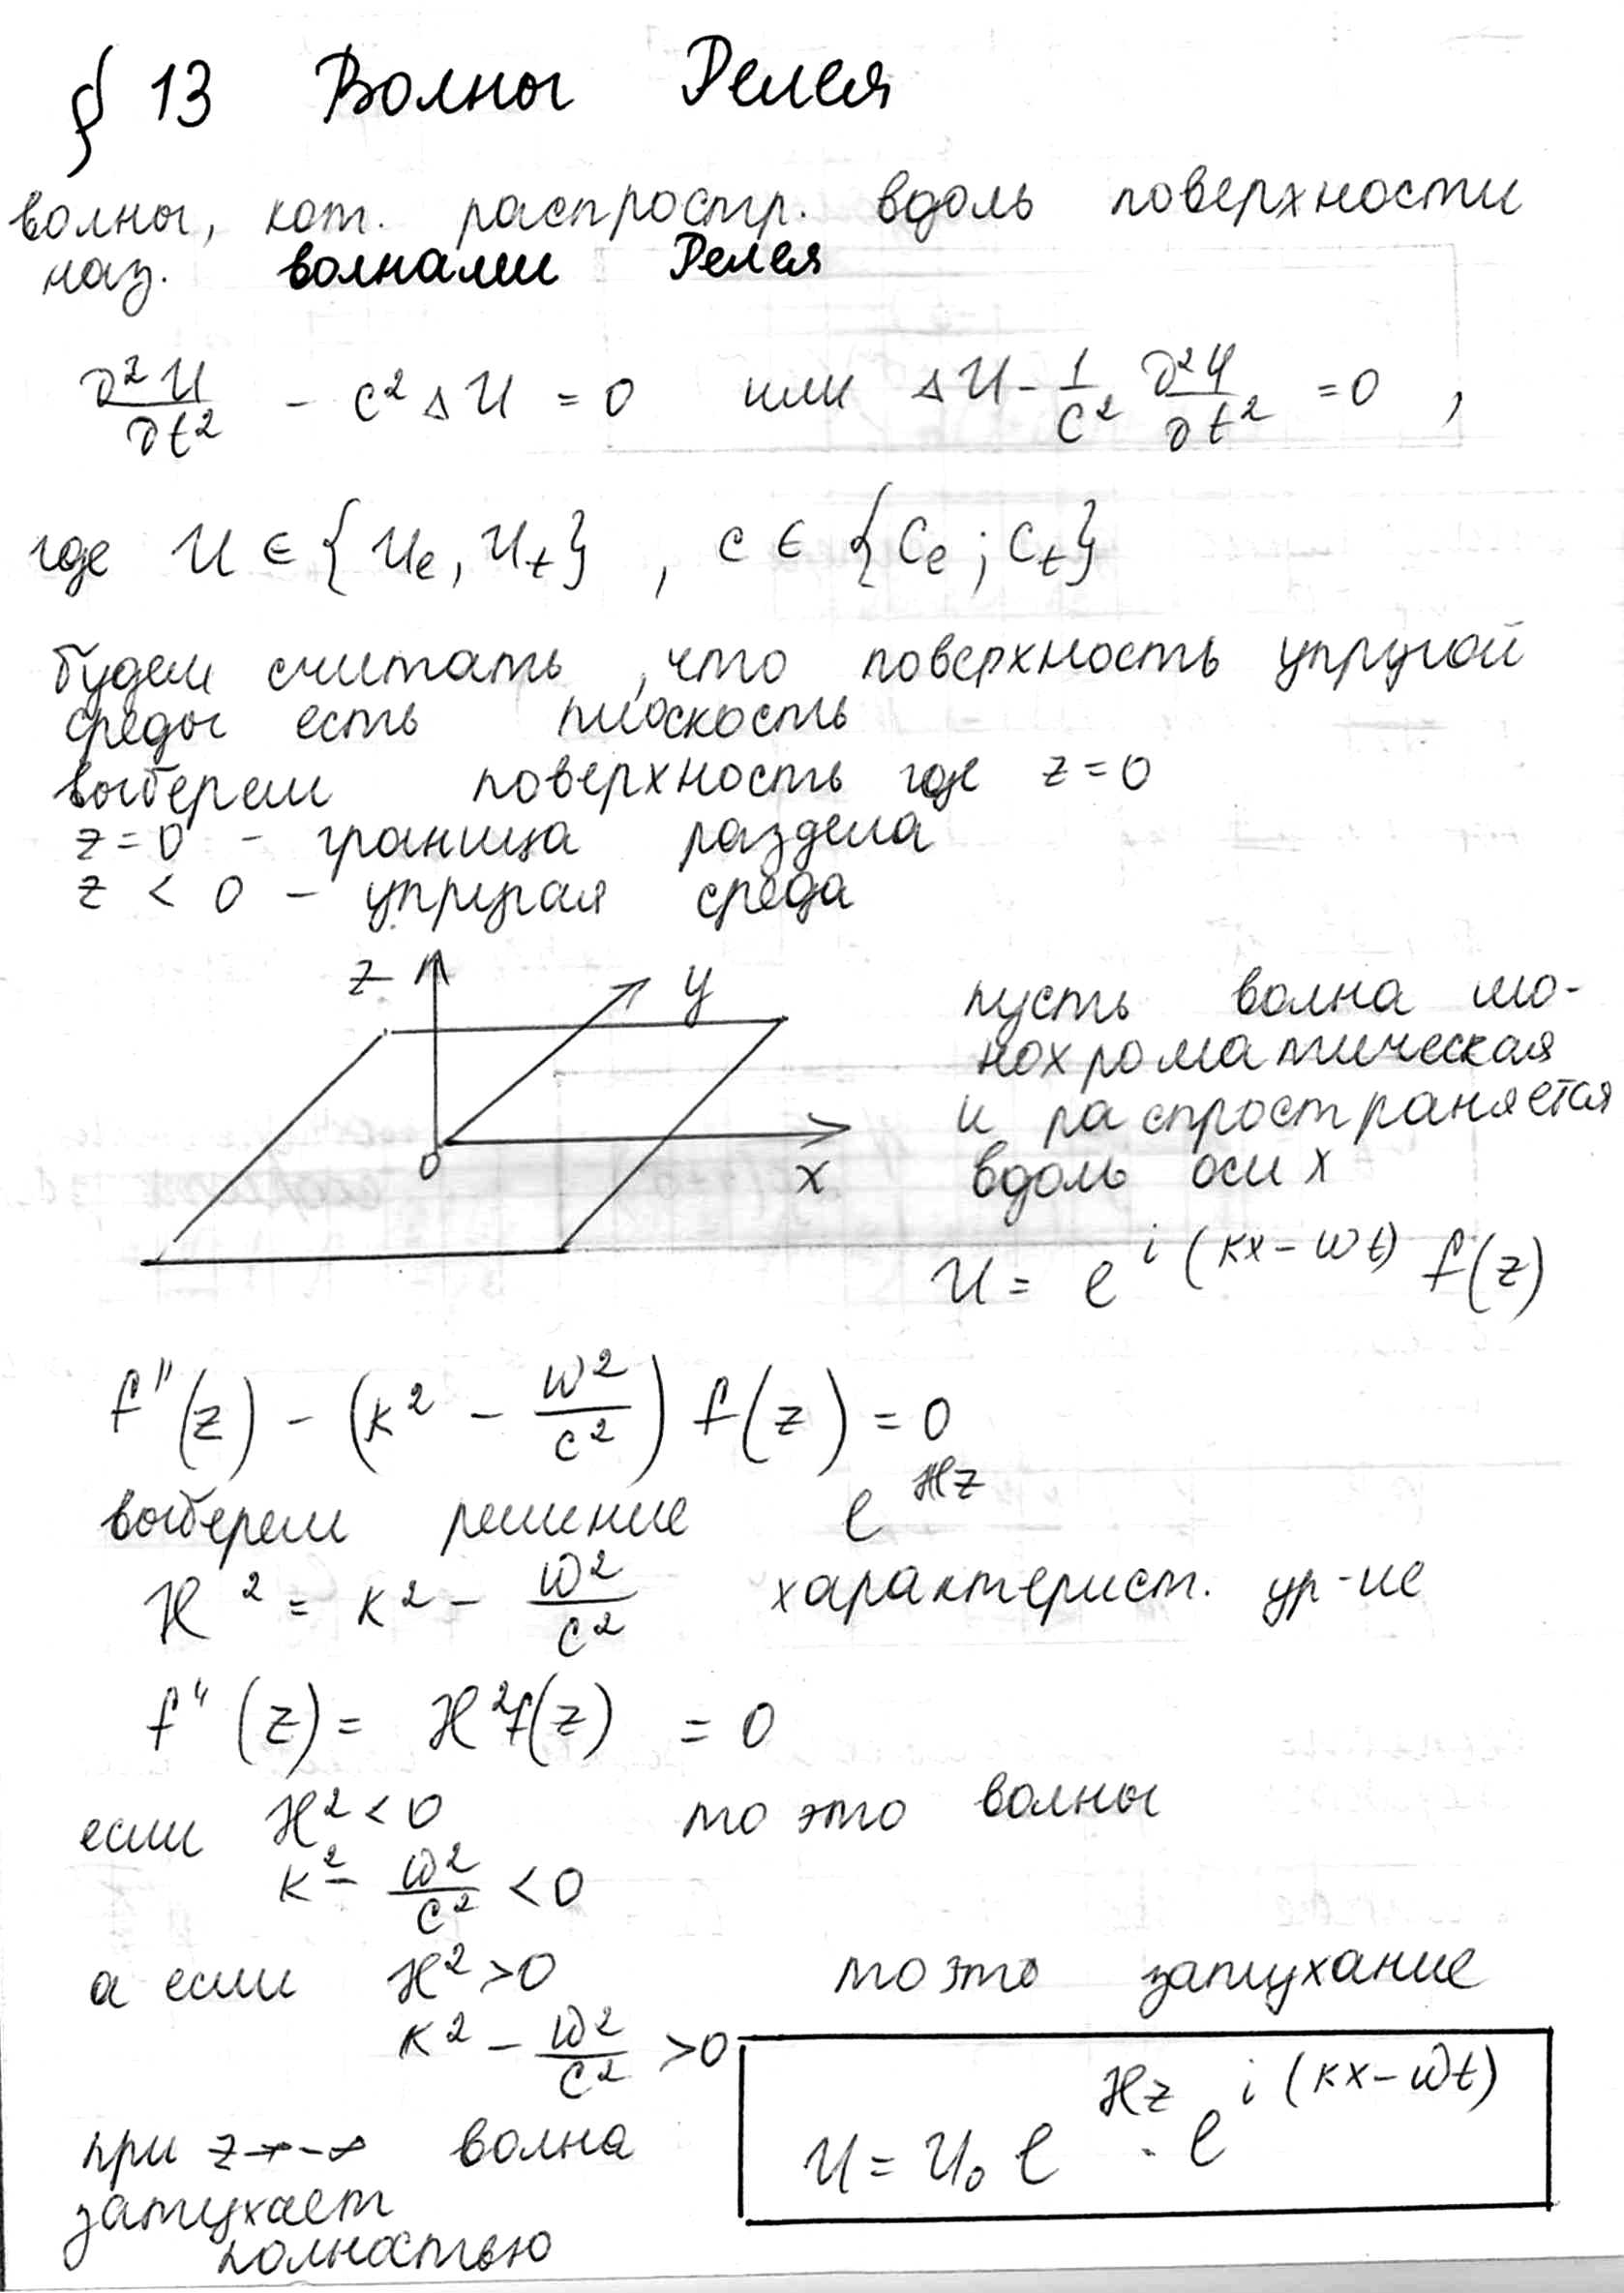 § 13 Волны Релея
волны, кот. распростр. вдоль поверхности
наз. волнами Релея
∂²U/∂t² - c² ΔU = 0 или ΔU - 1/c² ∂²U/∂t² = 0 ,
где U ∈ {Ue, Ut} , c ∈ {Ce ; Ct}
будем считать, что поверхность упругой
среды есть плоскость
выберем поверхность где z = 0
z = 0 - граница раздела
z < 0 - упругая среда
z y
0 x
пусть волна мо-
нохроматическая
и распространяется
вдоль оси x
U = e^{i(kx-ωt)} f(z)
f''(z) - (k² - ω²/c²) f(z) = 0
выберем решение e^{ℋz}
ℋ² = k² - ω²/c² характерист. ур-ие
f''(z) = ℋ²f(z) = 0
если ℋ² < 0 то это волны
k² - ω²/c² < 0
а если ℋ² > 0 то это затухание
k² - ω²/c² > 0
U = U₀ e^{ℋz} · e^{i(kx-ωt)}
при z → -∞ волна
затухает
полностью